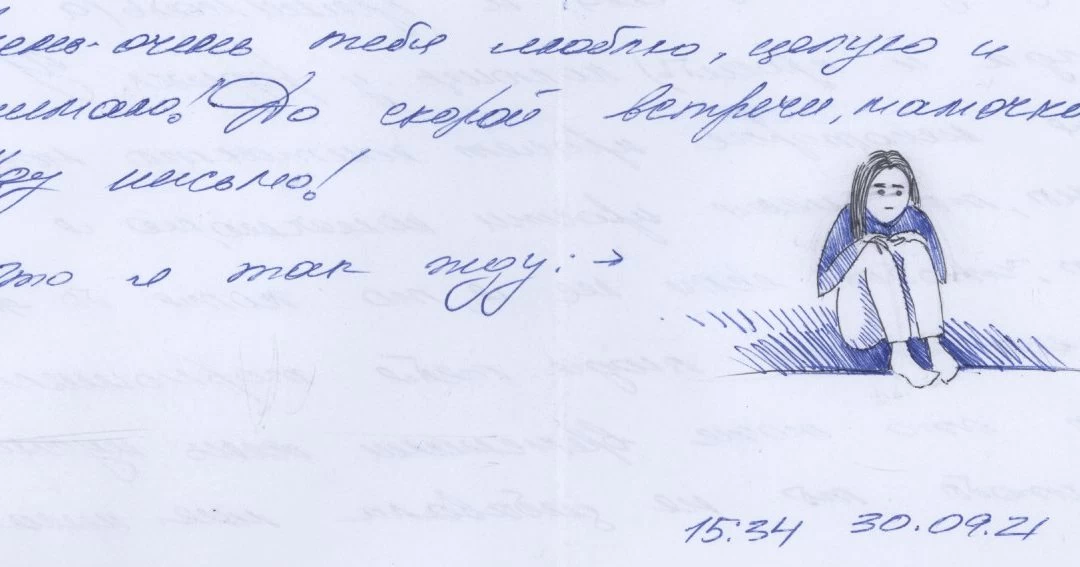 чень-очень тебя люблю, целую и
нимаю! До скорой встречи, мамочка
Жду письмо!
Это я так жду: →
15:34 30.09.21